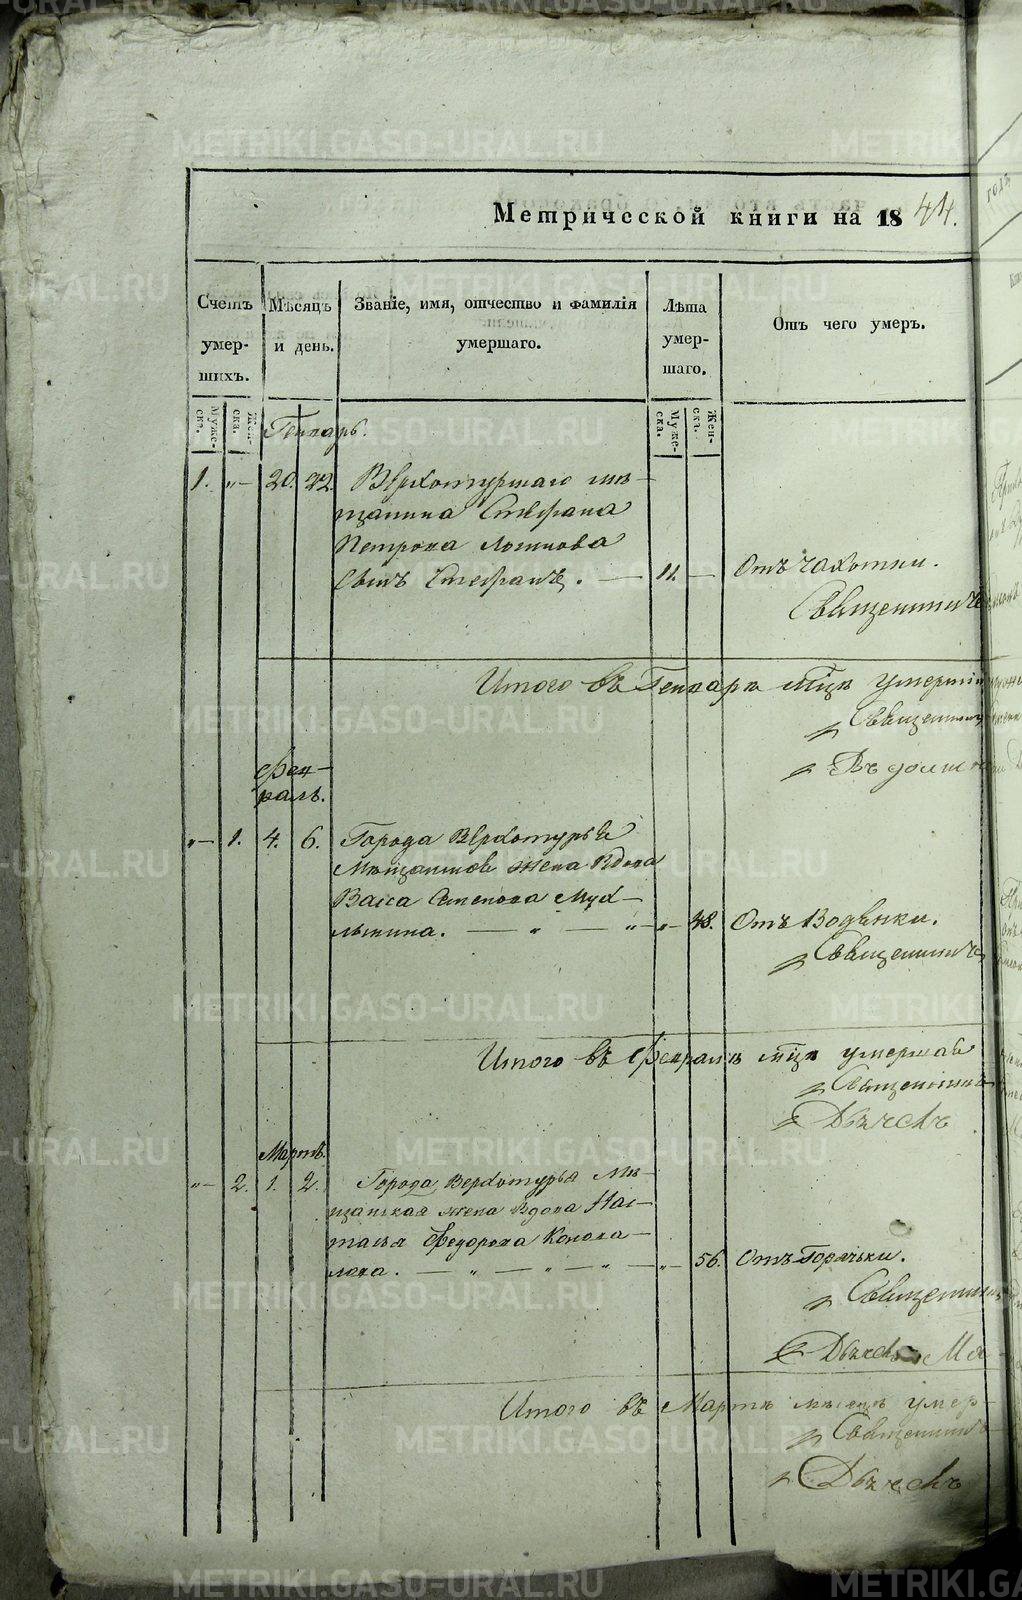 Метрической книги на 1844.
Счетъ умер-шихъ.
Мѣсяцъ и день.
Званіе, имя, отчество и фамилія умершаго.
Лѣта умер-шаго.
Отъ чего умеръ.
Муже-ска.
Жен-ска.
Муже-ска.
Жен-ска.
Генварь.
1. „— 20. 22. Верхотурскаго мѣ-
щанина Стефана
Петрова Логинова
Сынъ Стефанъ. — 11. — Отъ чахотки.
Священникъ
Итого въ Генварѣ мцѣ умерш
Священник
Въ должн
Фев-
раль.
„— 1. 4. 6. Города Верхотурья
Мѣщанинов жена Вдова
Васса Семенова Мух-
лынина. — „ — „ — „— 48. Отъ Водянки.
Священникъ
Итого въ Февралѣ мцѣ умершая
Священникъ
Дьячекъ
Мартъ.
„— 2. 1. 2. Города Верхотурья Мѣ-
щанская жена Вдова Нас-
тасья Федорова Конова-
лова. — „ — „ — „ — „— 56. Отъ Горячьки.
Священник
Дьячекъ
Итого въ Мартѣ месецѣ умер-
Священникъ
Дьячекъ
METRIKI.GASO-URAL.RU